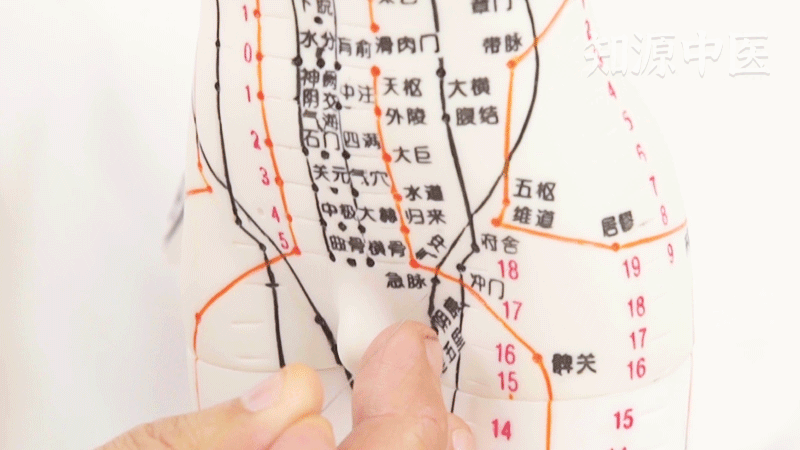 知源中医
下脘
章门
1
水分 肓俞 滑肉门
带脉
0
神阙 中注 天枢
大横
1
阴交
外陵
腹结
气海
石门 四满
大巨
2
关元 气穴
3
水道
五枢
中极 大赫 归来
维道
居髎
4
曲骨 横骨 气冲
府舍
5
急脉
冲门
阴廉
髀关
4
5
6
7
8
9
18
19
17
18
16
17
15
16
14
15